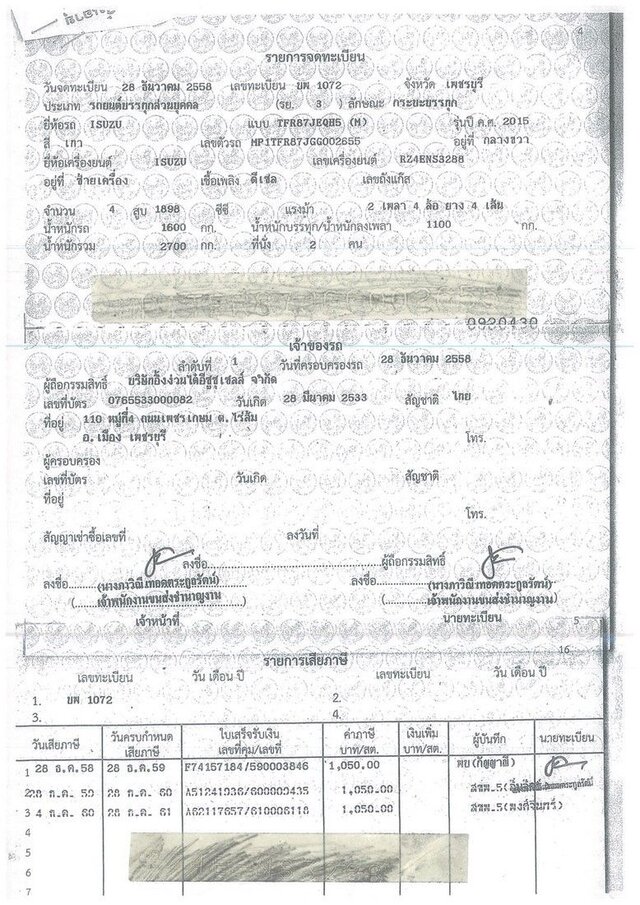 รายการจดทะเบียน
วันจดทะเบียน 28 ธันวาคม 2558 เลขทะเบียน บพ 1072 จังหวัด เพชรบุรี
ประเภท รถยนต์บรรทุกส่วนบุคคล (รย. 3 ) ลักษณะ กระบะบรรทุก
ยี่ห้อรถ ISUZU แบบ TFR87JEQH5 (M) รุ่นปี ค.ศ. 2015
สี เทา เลขตัวรถ MP1TFR87JGG002655 อยู่ที่ กลางขวา
ยี่ห้อเครื่องยนต์ ISUZU เลขเครื่องยนต์ RZ4ENS3288
อยู่ที่ ซ้ายเครื่อง เชื้อเพลิง ดีเซล เลขถังแก๊ส
จำนวน 4 สูบ 1898 ซีซี แรงม้า 2 เพลา 4 ล้อ ยาง 4 เส้น
น้ำหนักรถ 1600 กก. น้ำหนักบรรทุก/น้ำหนักลงเพลา 1100 กก.
น้ำหนักรวม 2700 กก. ที่นั่ง 2 คน
0920430
เจ้าของรถ
ลำดับที่ 1 วันที่ครอบครองรถ 28 ธันวาคม 2558
ผู้ถือกรรมสิทธิ์ บริษัทอึ้งง่วนไต๋อีซูซุเซลส์ จำกัด
เลขที่บัตร 0765533000082 วันเกิด 28 มีนาคม 2533 สัญชาติ ไทย
ที่อยู่ 110 หมู่ที่4 ถนนเพชรเกษม ต.ไร่ส้ม
อ.เมือง เพชรบุรี โทร.
ผู้ครอบครอง
เลขที่บัตร วันเกิด สัญชาติ
ที่อยู่
โทร.
สัญญาเช่าซื้อเลขที่ ลงวันที่
ลงชื่อ ผู้ถือกรรมสิทธิ์
ลงชื่อ (นางภาวิณี เทอดตระกูลรัตน์) ลงชื่อ (นางภาวิณี เทอดตระกูลรัตน์)
(เจ้าพนักงานขนส่งชำนาญงาน) (เจ้าพนักงานขนส่งชำนาญงาน)
เจ้าหน้าที่ นายทะเบียน
5
16
รายการเสียภาษี
เลขทะเบียน วัน เดือน ปี เลขทะเบียน วัน เดือน ปี
1. บพ 1072 2.
3. 4.
วันเสียภาษี วันครบกำหนดเสียภาษี ใบเสร็จรับเงิน เล่มที่คุม/เลขที่ ค่าภาษี บาท/สต. เงินเพิ่ม บาท/สต. ผู้บันทึก นายทะเบียน
1 28 ธ.ค.58 28 ธ.ค.59 F74157184/590003846 1,050.00
2 28 ธ.ค. 60 1,050.00 สชพ.5
3 4 ต.ค. 60 28 ธ.ค. 61 1,050.00 สชพ.5(พงศ์จันทร์)
4
5
6
7